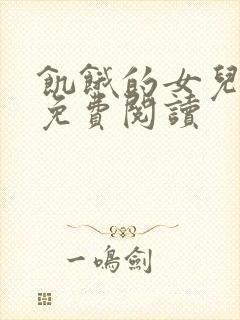 飢餓的女兒
免費閱讀
一鳴劍